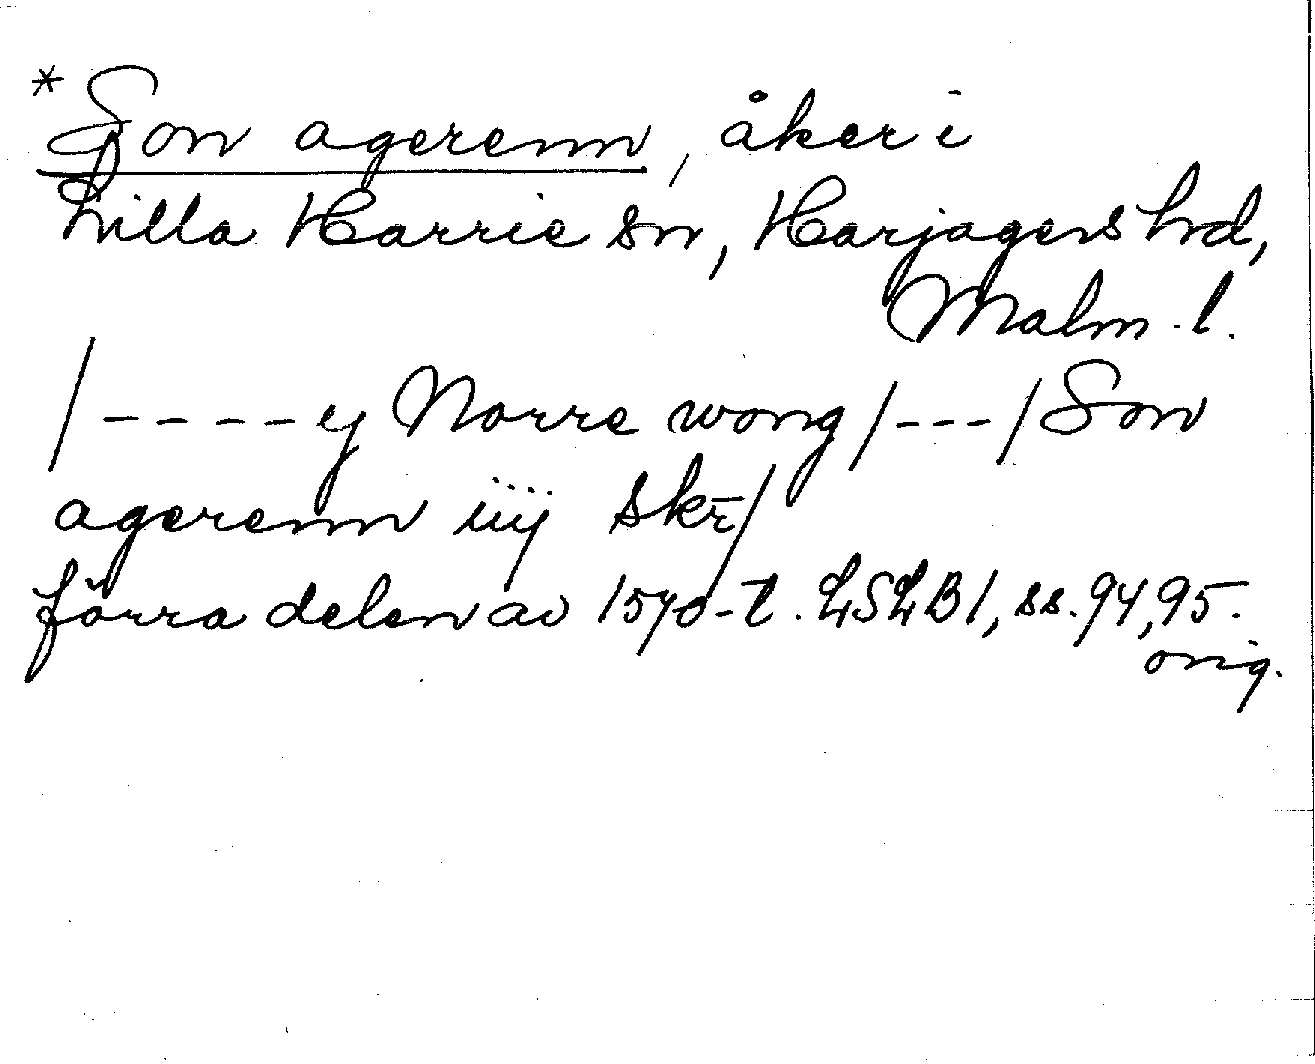 *Son agerenn, åker i
Lilla Harrie sn, Harjagers hd,
Malm. l.
/----ÿ Norre wong/---/Son
agerenn iiij skr̄/
förra delen av 1570-t. LSLB1, ss. 94, 95.
orig.